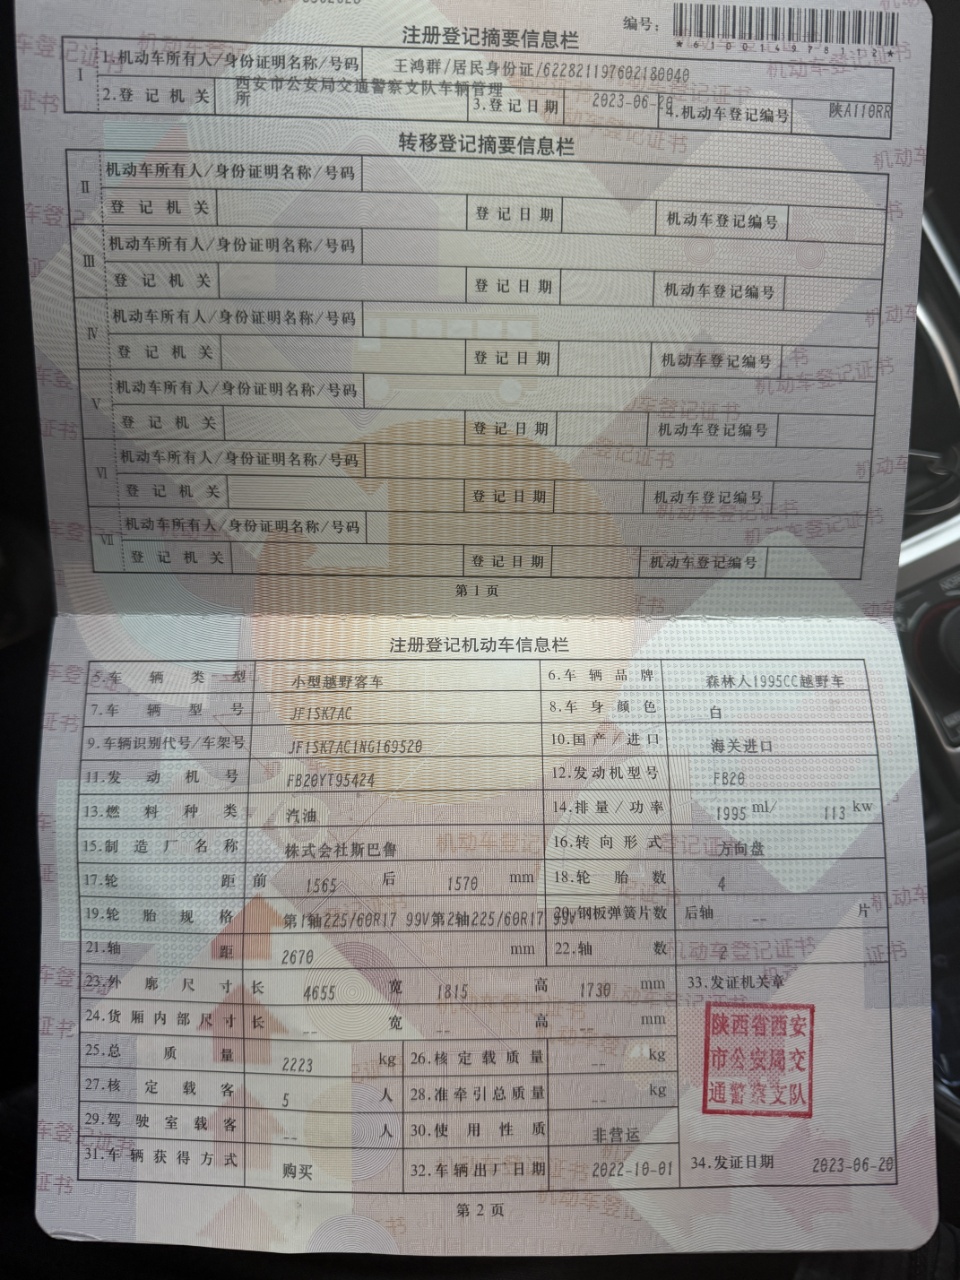 编号:
*610014978112*
注册登记摘要信息栏
I 1.机动车所有人/身份证明名称/号码 王鸿群/居民身份证/622821197602180040
2.登记机关 西安市公安局交通警察支队车辆管理所 3.登记日期 2023-06-20 4.机动车登记编号 陕A110RR
转移登记摘要信息栏
II 机动车所有人/身份证明名称/号码
登记机关 登记日期 机动车登记编号
III 机动车所有人/身份证明名称/号码
登记机关 登记日期 机动车登记编号
IV 机动车所有人/身份证明名称/号码
登记机关 登记日期 机动车登记编号
V 机动车所有人/身份证明名称/号码
登记机关 登记日期 机动车登记编号
VI 机动车所有人/身份证明名称/号码
登记机关 登记日期 机动车登记编号
VII 机动车所有人/身份证明名称/号码
登记机关 登记日期 机动车登记编号
第1页
注册登记机动车信息栏
5.车辆类型 小型越野客车 6.车辆品牌 森林人1995CC越野车
7.车辆型号 JF1SK7AC 8.车身颜色 白
9.车辆识别代号/车架号 JF1SK7AC1NG169520 10.国产/进口 海关进口
11.发动机号 FB20YT95424 12.发动机型号 FB20
13.燃料种类 汽油 14.排量/功率 1995 ml/ 113 kw
15.制造厂名称 株式会社斯巴鲁 16.转向形式 方向盘
17.轮距 前 1565 后 1570 mm 18.轮胎数 4
19.轮胎规格 第1轴225/60R17 99V第2轴225/60R17 99V 20.钢板弹簧片数 后轴 -- 片
21.轴距 2670 mm 22.轴数 2
23.外廓尺寸 长 4655 宽 1815 高 1730 mm 33.发证机关章
24.货厢内部尺寸 长 -- 宽 -- 高 -- mm
25.总质量 2223 kg 26.核定载质量 -- kg
27.核定载客 5 人 28.准牵引总质量 -- kg
29.驾驶室载客 -- 人 30.使用性质 非营运
31.车辆获得方式 购买 32.车辆出厂日期 2022-10-01 34.发证日期 2023-06-20
陕西省西安
市公安局交
通警察支队
第2页